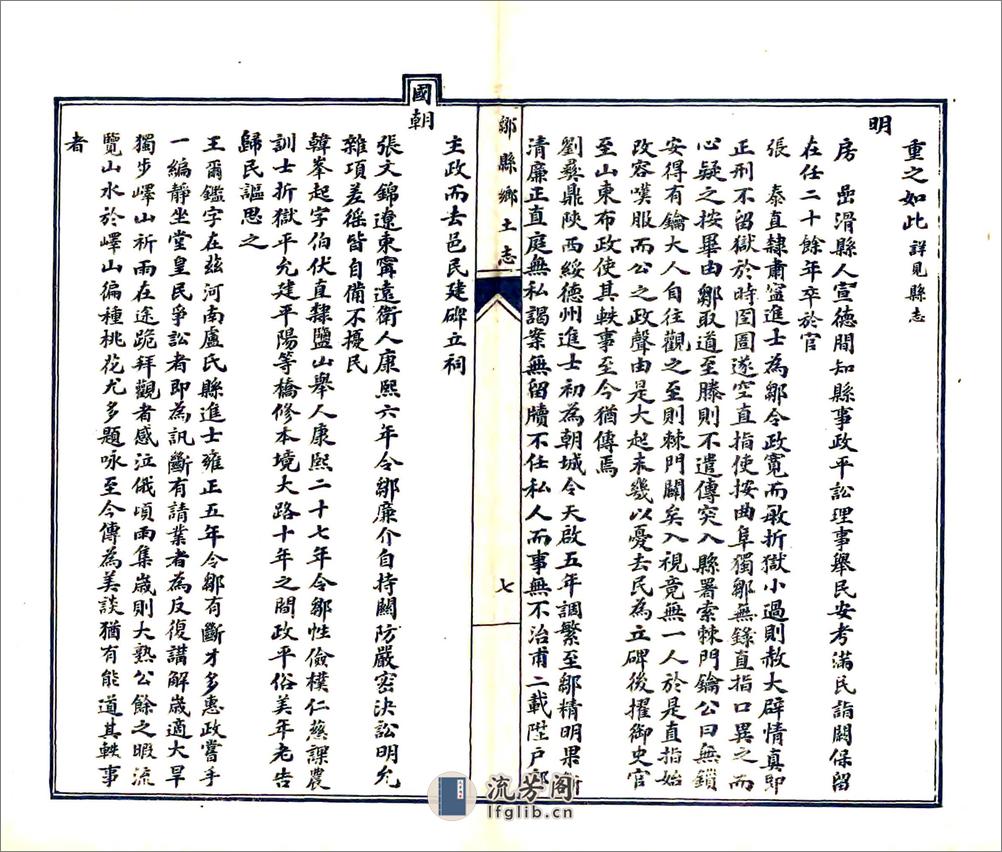 重之如此詳見縣志
明
房嵒滑縣人宣德間知縣事政平訟理事舉民安考滿民詣闕保留
在任二十餘年卒於官
張泰直隸肅寧進士為鄒令政寬而敢折獄小過則赦大辟情真即
正刑不留獄於時囹圄遂空直指使按曲阜獨鄒無錄直指口異之而
心疑之按畢由鄒取道至滕則不遣傳突入縣署索棘門鑰公曰無鎖
安得有鑰大人自往觀之至則棘門闢矣入視竟無一人於是直指始
改容嘆服而公之政聲由是大起未幾以憂去民為立碑後擢御史官
至山東布政使其軼事至今猶傳焉
劉彞鼎陝西綏德州進士初為朝城令天啟五年調繁至鄒精明果斷
清廉正直庭無私謁案無留牘不任私人而事無不治甫二載陞戶部
鄒縣鄉土志
七
主政而去邑民建碑立祠
國朝
張文錦遼東寧遠衛人康熙六年令鄒廉介自持關防嚴密決訟明允
雜項差徭皆自備不擾民
韓峯起字伯伏直隸鹽山舉人康熙二十七年令鄒性儉樸仁慈課農
訓士折獄平允建平陽等橋修本境大路十年之間政平俗美年老告
歸民謳思之
王爾鑑字在茲河南盧氏縣進士雍正五年令鄒有斷才多惠政嘗手
一編靜坐堂皇民爭訟者即為訊斷有請業者為反復講解歲適大旱
獨步嶧山祈雨在途跪拜觀者感泣俄頃雨集歲則大熟公餘之暇流
覽山水於嶧山徧種桃花尤多題咏至今傳為美談猶有能道其軼事
者
流芳阁
lfglib.cn